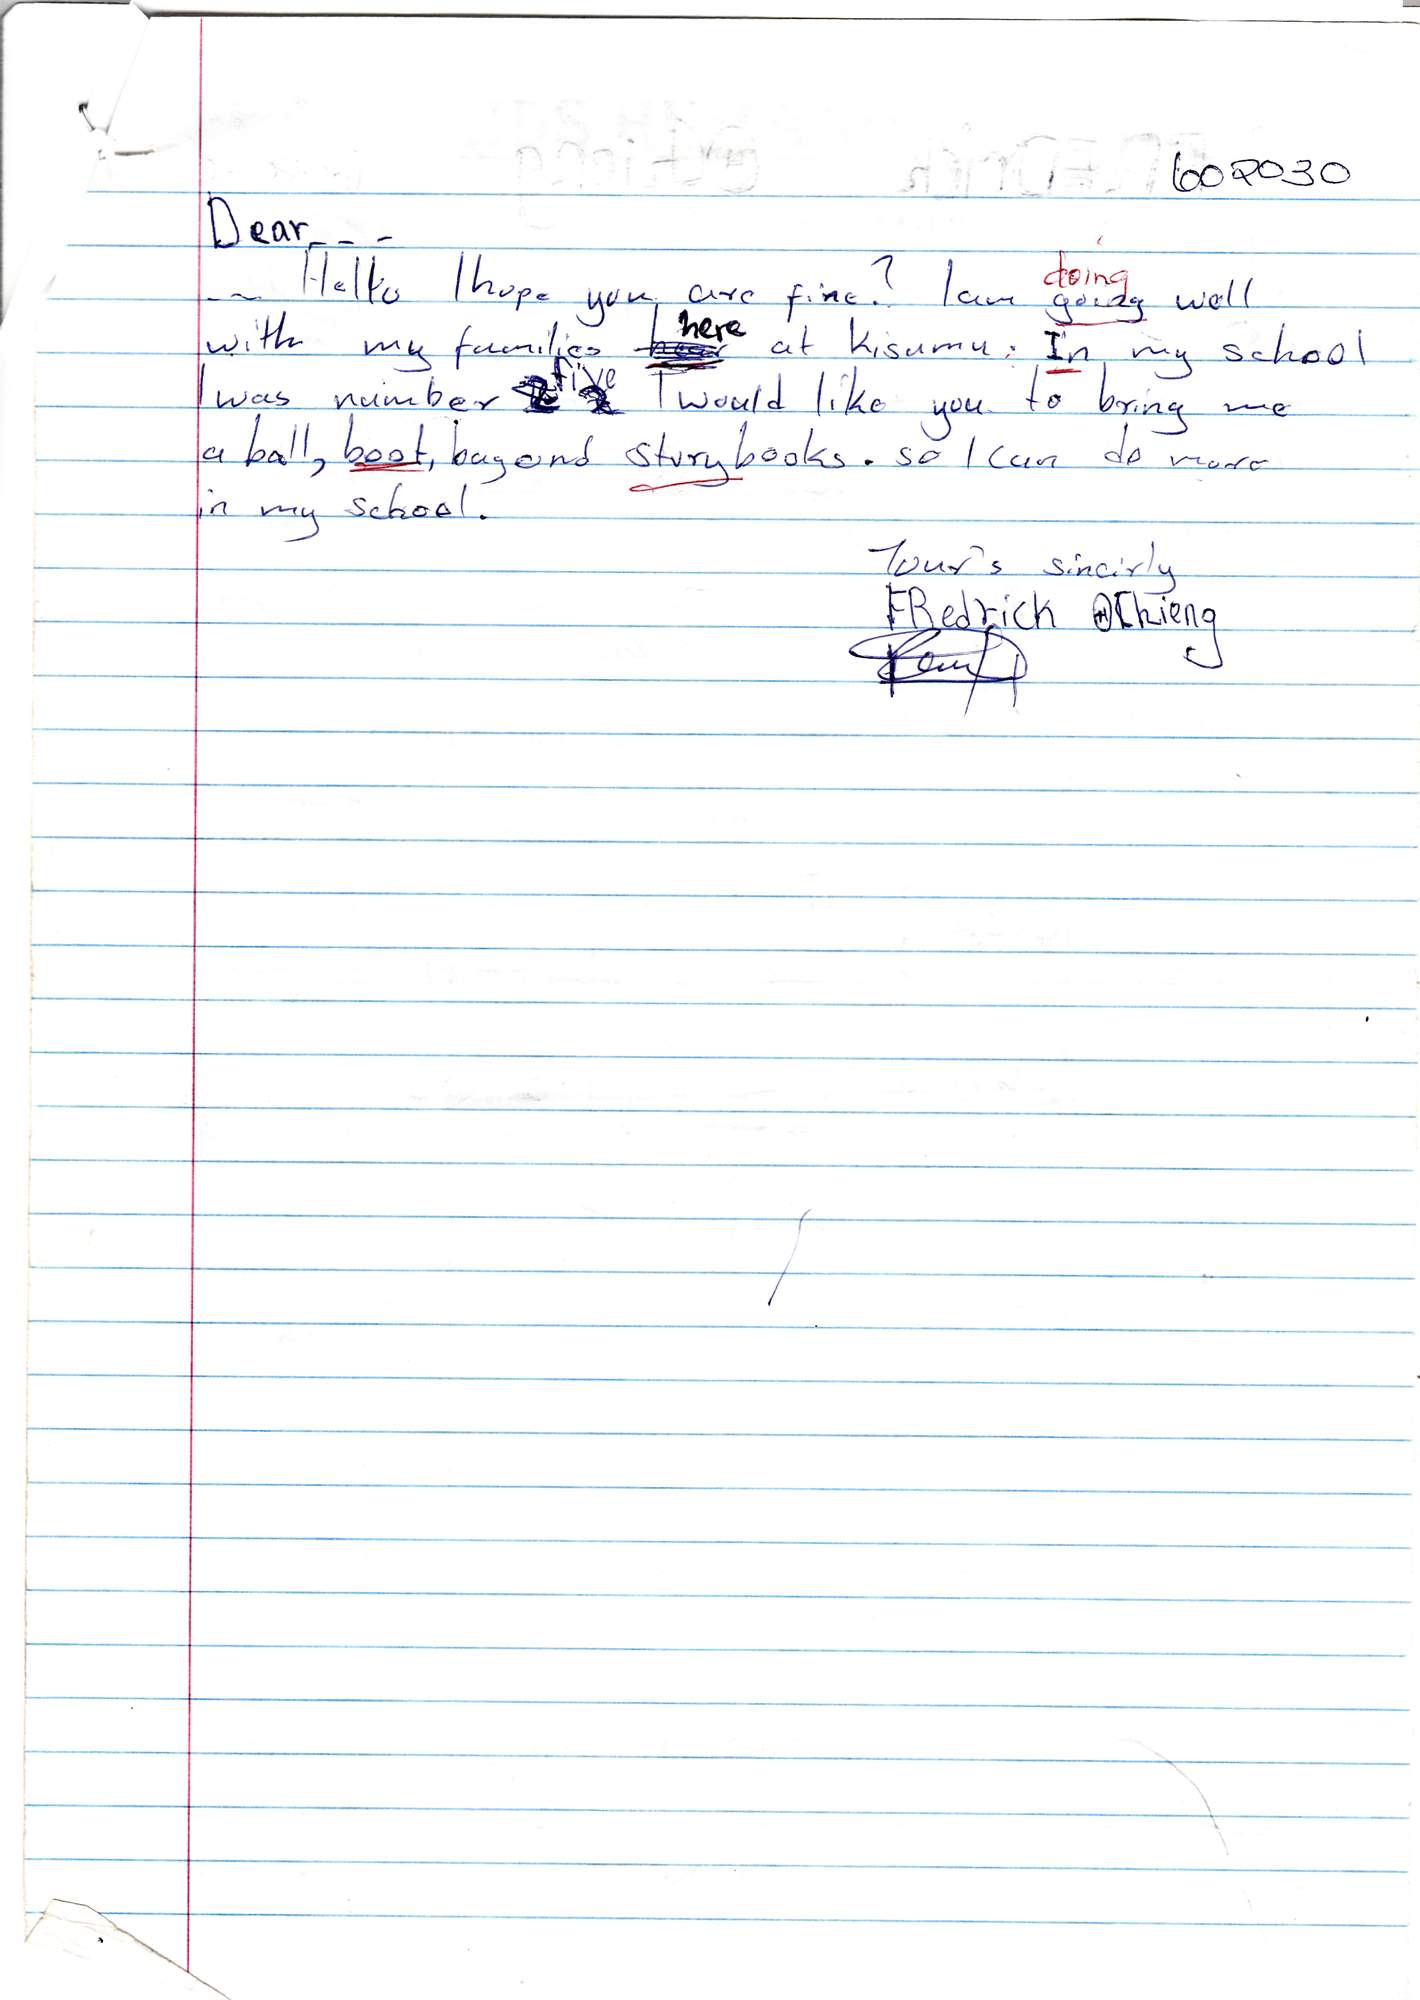 602030
Dear_ _ _
_ _ Hello I hope you are fine? I am doing going well
with my families here at Kisumu. In my school
I was number five I would like you to bring me
a ball, boot, bag and storybooks. so I can do more
in my school.
Your's sincirly
FRedrick Othieng